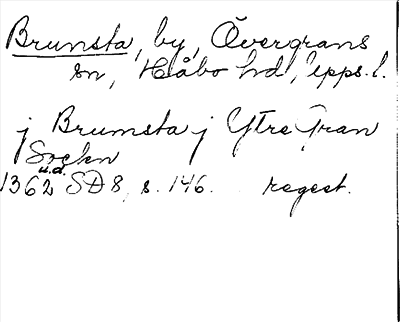 Brunsta, by, Övergrans
sn, Håbo hd, Upps. l.
j Brumsta j Ytre Gran
Sockn
u.d.
1362 SD 8, s. 146. regest.